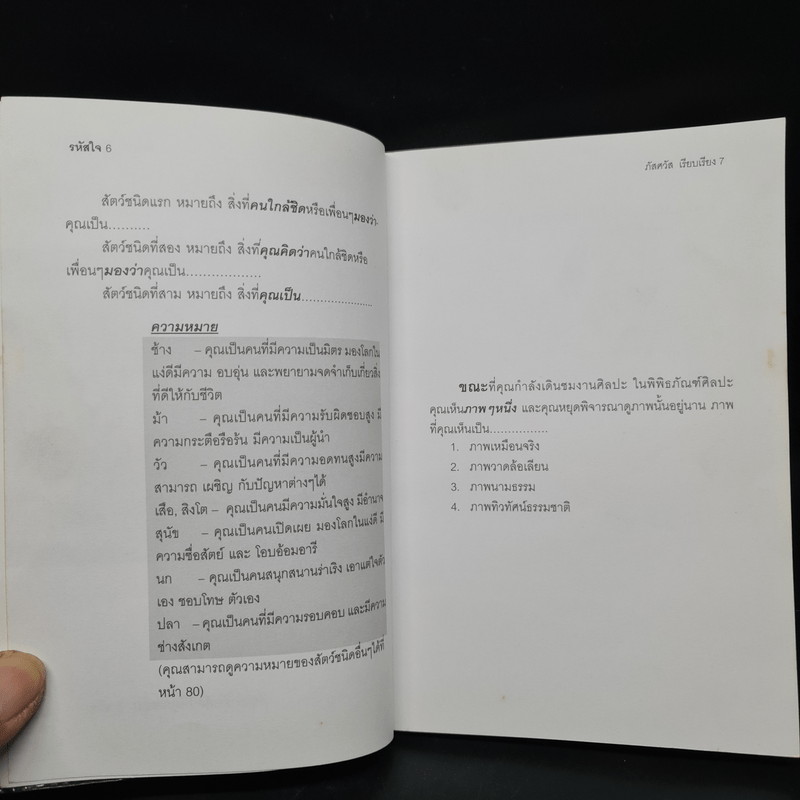 รหัสใจ 6
สัตว์ชนิดแรก หมายถึง สิ่งที่คนใกล้ชิดหรือเพื่อนๆมองว่า
คุณเป็น..........
สัตว์ชนิดที่สอง หมายถึง สิ่งที่คุณคิดว่าคนใกล้ชิดหรือ
เพื่อนๆมองว่าคุณเป็น.................
สัตว์ชนิดที่สาม หมายถึง สิ่งที่คุณเป็น......................
ความหมาย
ช้าง – คุณเป็นคนที่มีความเป็นมิตร มองโลกใน
แง่ดีมีความ อบอุ่น และพยายามจดจำเก็บเกี่ยวสิ่ง
ที่ดีให้กับชีวิต
ม้า – คุณเป็นคนที่มีความรับผิดชอบสูง มี
ความกระตือรือร้น มีความเป็นผู้นำ
วัว – คุณเป็นคนที่มีความอดทนสูงมีความ
สามารถ เผชิญ กับปัญหาต่างๆได้
เสือ, สิงโต – คุณเป็นคนมีความมั่นใจสูง มีอำนาจ
สุนัข – คุณเป็นคนเปิดเผย มองโลกในแง่ดี มี
ความซื่อสัตย์ และ โอบอ้อมอารี
นก – คุณเป็นคนสนุกสนานร่าเริง เอาแต่ใจตัว
เอง ชอบโทษ ตัวเอง
ปลา – คุณเป็นคนที่มีความรอบคอบ และมีความ
ช่างสังเกต
(คุณสามารถดูความหมายของสัตว์ชนิดอื่นๆได้ที่
หน้า 80)
ภัสควัส เรียบเรียง 7
ขณะที่คุณกำลังเดินชมงานศิลปะ ในพิพิธภัณฑ์ศิลปะ
คุณเห็นภาพๆหนึ่ง และคุณหยุดพิจารณาดูภาพนั้นอยู่นาน ภาพ
ที่คุณเห็นเป็น................
1. ภาพเหมือนจริง
2. ภาพวาดล้อเลียน
3. ภาพนามธรรม
4. ภาพทิวทัศน์ธรรมชาติ